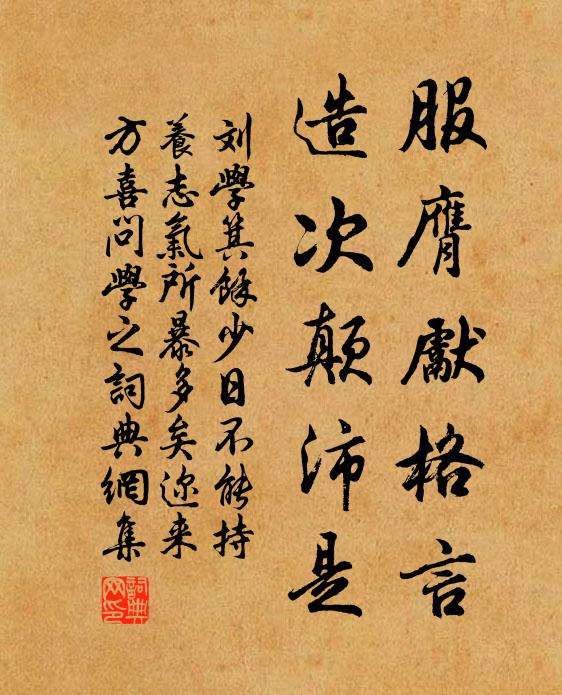 服膺獻格言
造次顛沛是
刘學箕餘少日不能持
養志氣所暴多矣迩来
方喜問學之詞典網集
詞典
网印